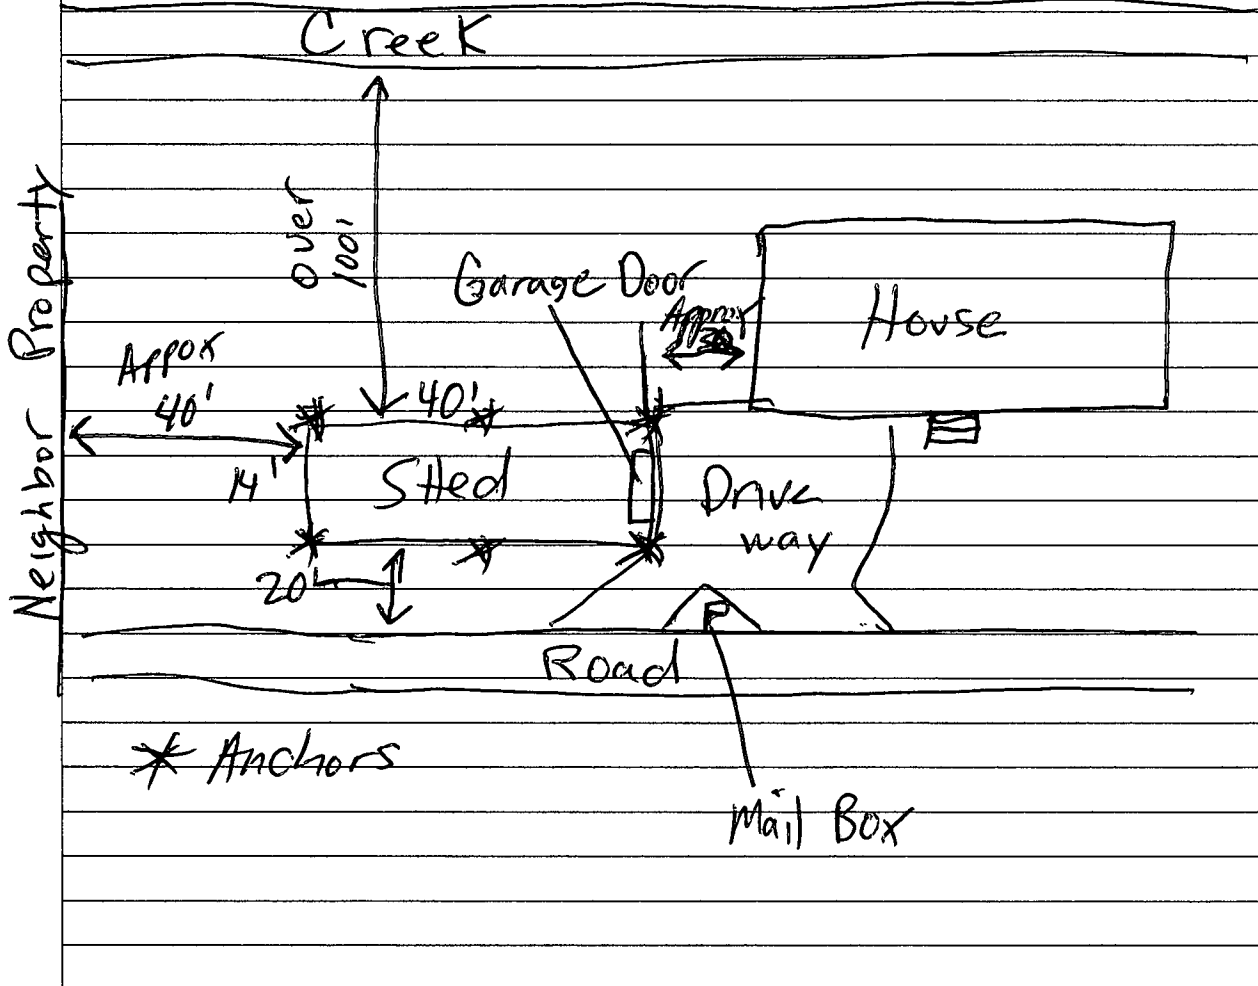 Creek
Neighbor Property
over
100'
Garage Door
Approx
House
Appox
40'
40'
14'
SHed
Drive
way
20'
Road
Anchors
Mail Box